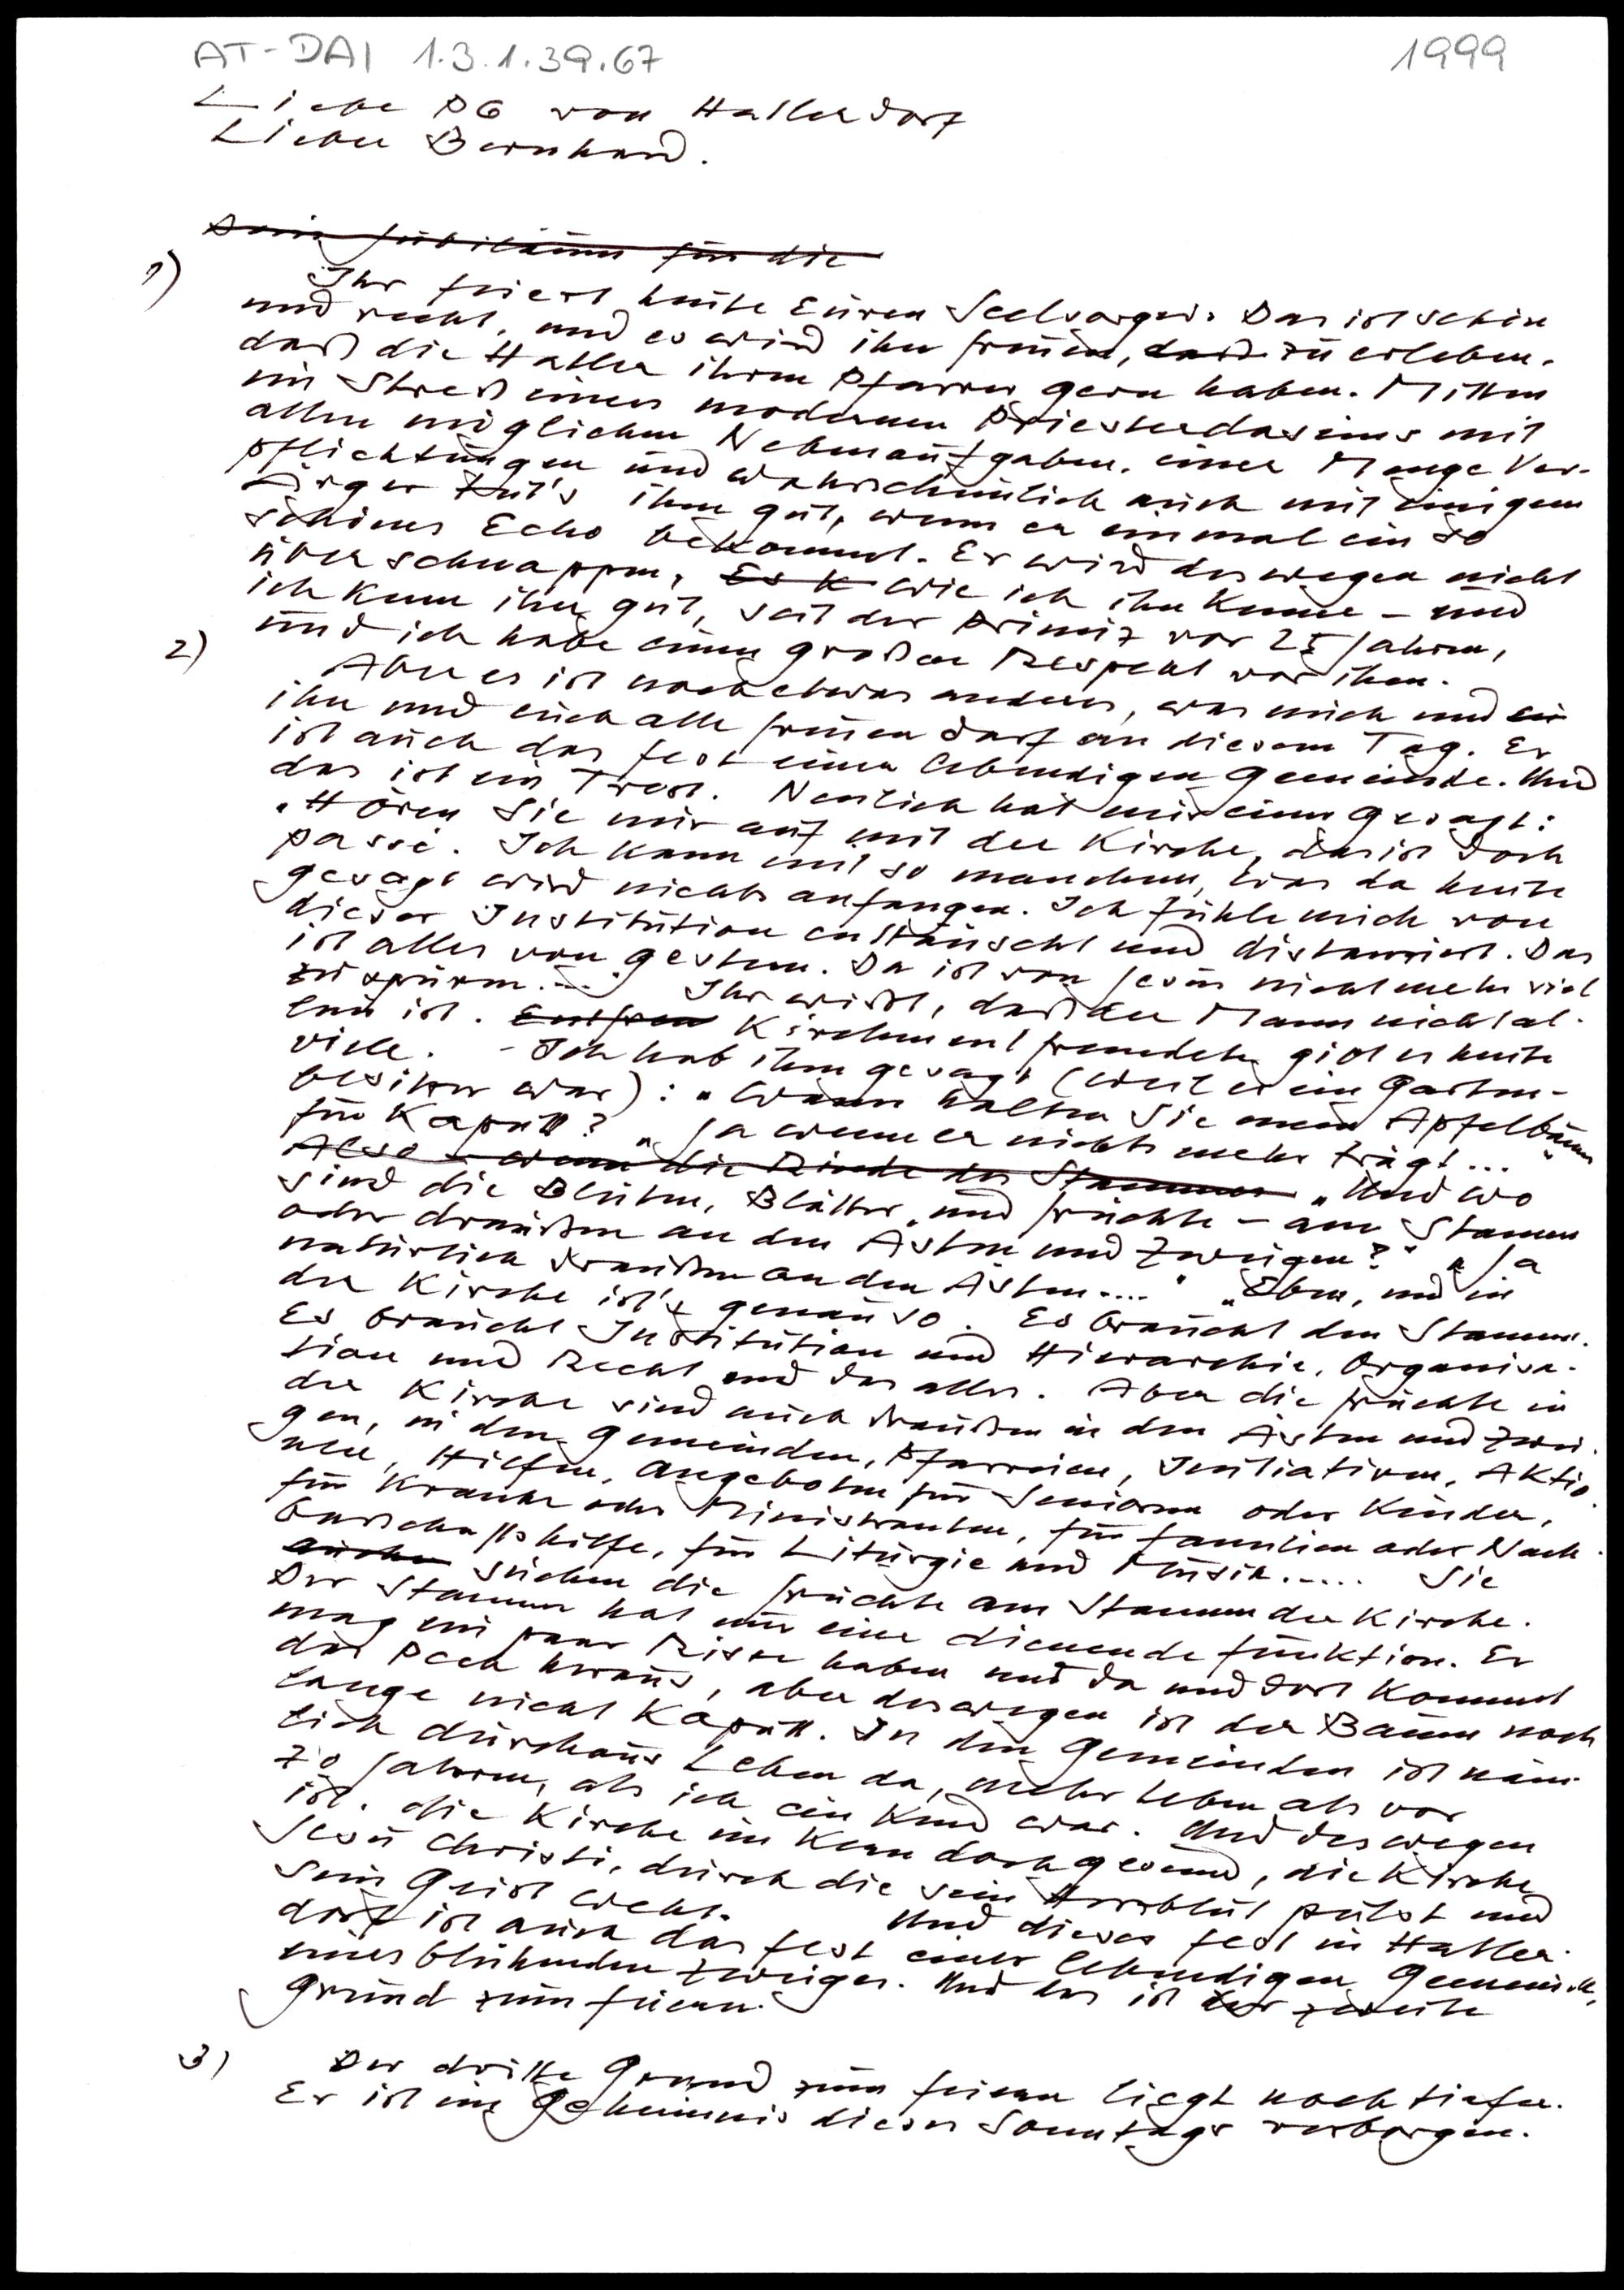 AT-DAI 1.3.1.39.67
1999
Liebe PG von Hallerdorf
Lieber Bernhard.
Dein Jubiläum für die
1)
Ihr feiert heute Euren Seelsorger. Das ist schön
und recht, und es wird ihn freuen, dass zu erleben.
daß die Haller ihren Pfarrer gern haben. Mitten
im Streß eines modernen Priesterdaseins mit
allen möglichen Nebenaufgaben. einer Menge Ver-
pflichtungen und wahrscheinlich auch mit einigem
Ärger tut's ihm gut, wenn er einmal ein so
schönes Echo bekommt. Er wird deswegen nicht
überschnappen, Es k wie ich ihn kenne - und
ich kenn ihn gut, seit der Primiz vor 25 Jahren,
und ich habe einen großen Respekt vor ihm.
2)
Aber es ist noch etwas anderes, was mich und
ihn und euch alle freuen darf an diesem Tag. Es
ist auch das Fest einer lebendigen Gemeinde. Und
das ist ein Trost. Neulich hat mir einer gesagt:
"Hören Sie mir auf mit der Kirche, das ist doch
passé. Ich kann mit so manchem, was da heute
gesagt wird nichts anfangen. Ich fühle mich von
dieser Institution enttäuscht und distanziert. Das
ist alles von gestern. Da ist von Jesus nicht mehr viel
zu spüren...." Ihr wißt, daß der Mann nicht al-
lein ist. Entfrem Kirchenentfremdete gibt es heute
viele. - Ich hab ihm gesagt (weil er ein Garten-
besitzer war): "Wann halten Sie einen Apfelbaum
für kaputt? "Ja wenn er nichts mehr trägt..."
Also - wenn die Rinde des Stammes "Und wo
sind die Blüten, Blätter und Früchte - am Stamm
oder draußen an den Ästen und Zweigen?" "Ja
natürlich draußen an den Ästen...." "Eben, und in
der Kirche ist's genau so. Es braucht den Stamm.
Es braucht Institution und Hierarchie, Organisa-
tion und Recht und das alles. Aber die Früchte in
der Kirche sind auch draußen in den Ästen und Zwei-
gen, in den Gemeinden, Pfarreien, Initiativen, Aktio-
nen, Hilfen, Angeboten für Senioren oder Kinder,
für Kranke oder Ministranten, für Familien oder Nach-
barschaftshilfe, für Liturgie und Musik..... Sie
suchen suchen die Früchte am Stamm der Kirche.
Der Stamm hat nur eine dienende Funktion. Er
mag ein paar Risse haben und da und dort kommt
das Pech heraus, aber deswegen ist der Baum noch
lange nicht kaputt. In den Gemeinden ist näm-
lich durchaus Leben da, mehr Leben als vor
70 Jahren, als ich ein Kind war. Und deswegen
ist die Kirche im Kern doch gesund, die Kirche
Jesu Christi, durch die sein Herzblut pulst und
Sein Geist weht. Und dieses Fest in Haller-
dorf ist auch das Fest einer lebendigen Gemeinde,
eines blühenden Zweiges. Und das ist der zweite
Grund zum feiern.
3)
Der dritte Grund zum feiern liegt noch tiefer.
Er ist im Geheimnis dieses Sonntags verborgen.